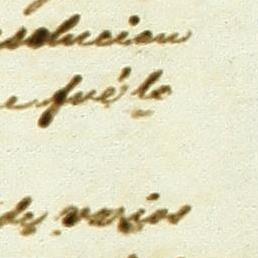 solucion
e fué lo
de varios